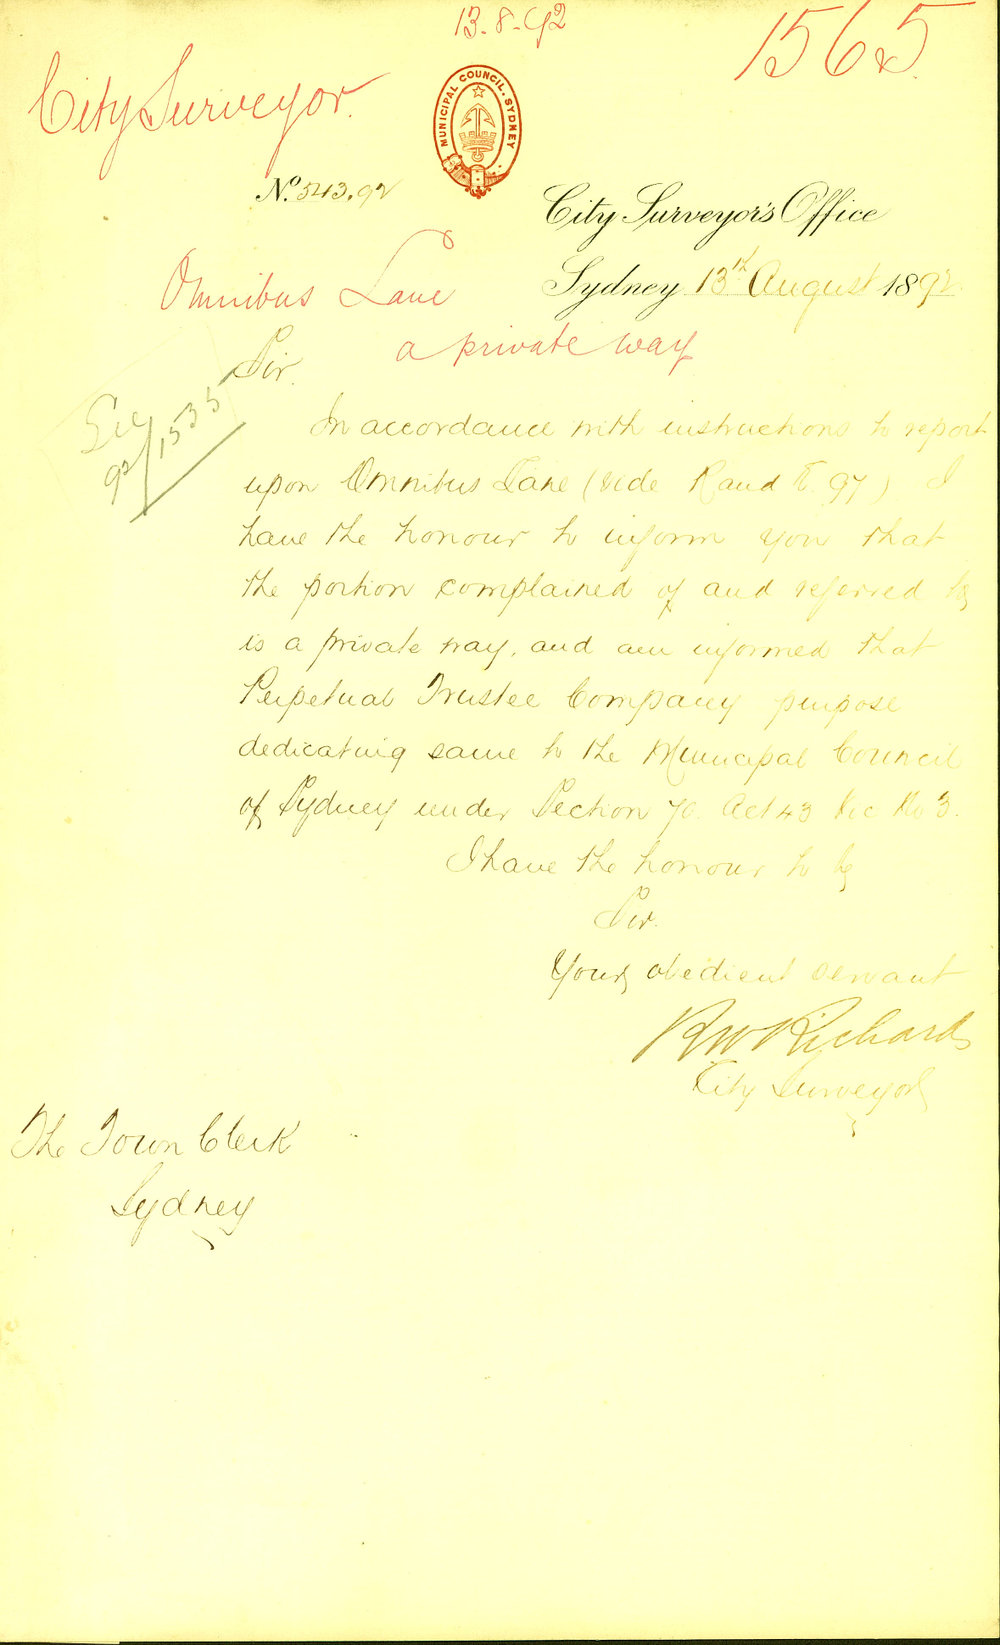 13.8.92
1565
City Surveyor.
MUNICIPAL COUNCIL. SYDNEY
No. 543.92
City Surveyor's Office
Omnibus Lane
Sydney 13th August 1892
a private way
Sir.
See
92/1535
In accordance with instructions to report
upon Omnibus Lane (vide R and 97) I
have the honour to inform you that
the portion complained of and referred to
is a private way, and am informed that
Perpetual Trustee Company purpose
dedicating same to the Municipal Council
of Sydney under Section 70. Act 43 Vic No 3.
I have the honour to be
Sir.
Your obedient servant
RW Richards
City Surveyor
The Town Clerk
Sydney